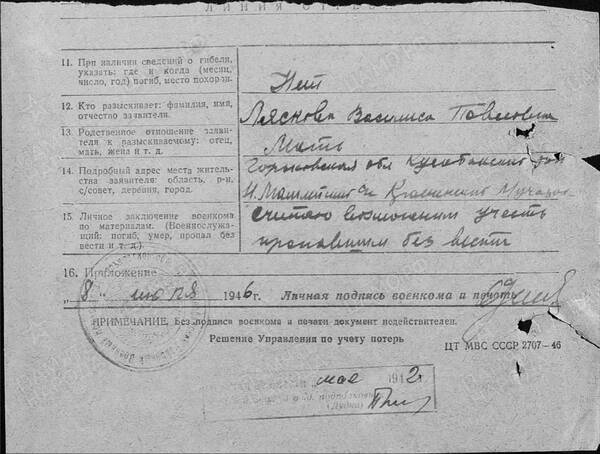 ЛИНИЯ ОТРЕЗА
11. При наличии сведений о гибели,
указать: где и когда (месяц,
число, год) погиб, место похорон.
Нет
12. Кто разыскивает: фамилия, имя,
отчество заявителя.
Ляскова Василиса Павловна
13. Родственное отношение заяви-
теля к разыскиваемому: отец,
мать, жена и т. д.
Мать
14. Подробный адрес места житель-
ства заявителя: область, р-н,
с/совет, деревня, город.
Горьковская обл
15. Личное заключение военкома
по материалам. (Военнослужа-
щий: погиб, умер, пропал без
вести и т. д.).
Считаю возможным учесть
пропавшим без вести
16. Приложение
„8" июля 1946г. Личная подпись военкома и печать
ПРИМЕЧАНИЕ. Без подписи военкома и печати документ недействителен.
Решение Управления по учету потерь
ЦТ МВС СССР 2707-46
мае 1942г